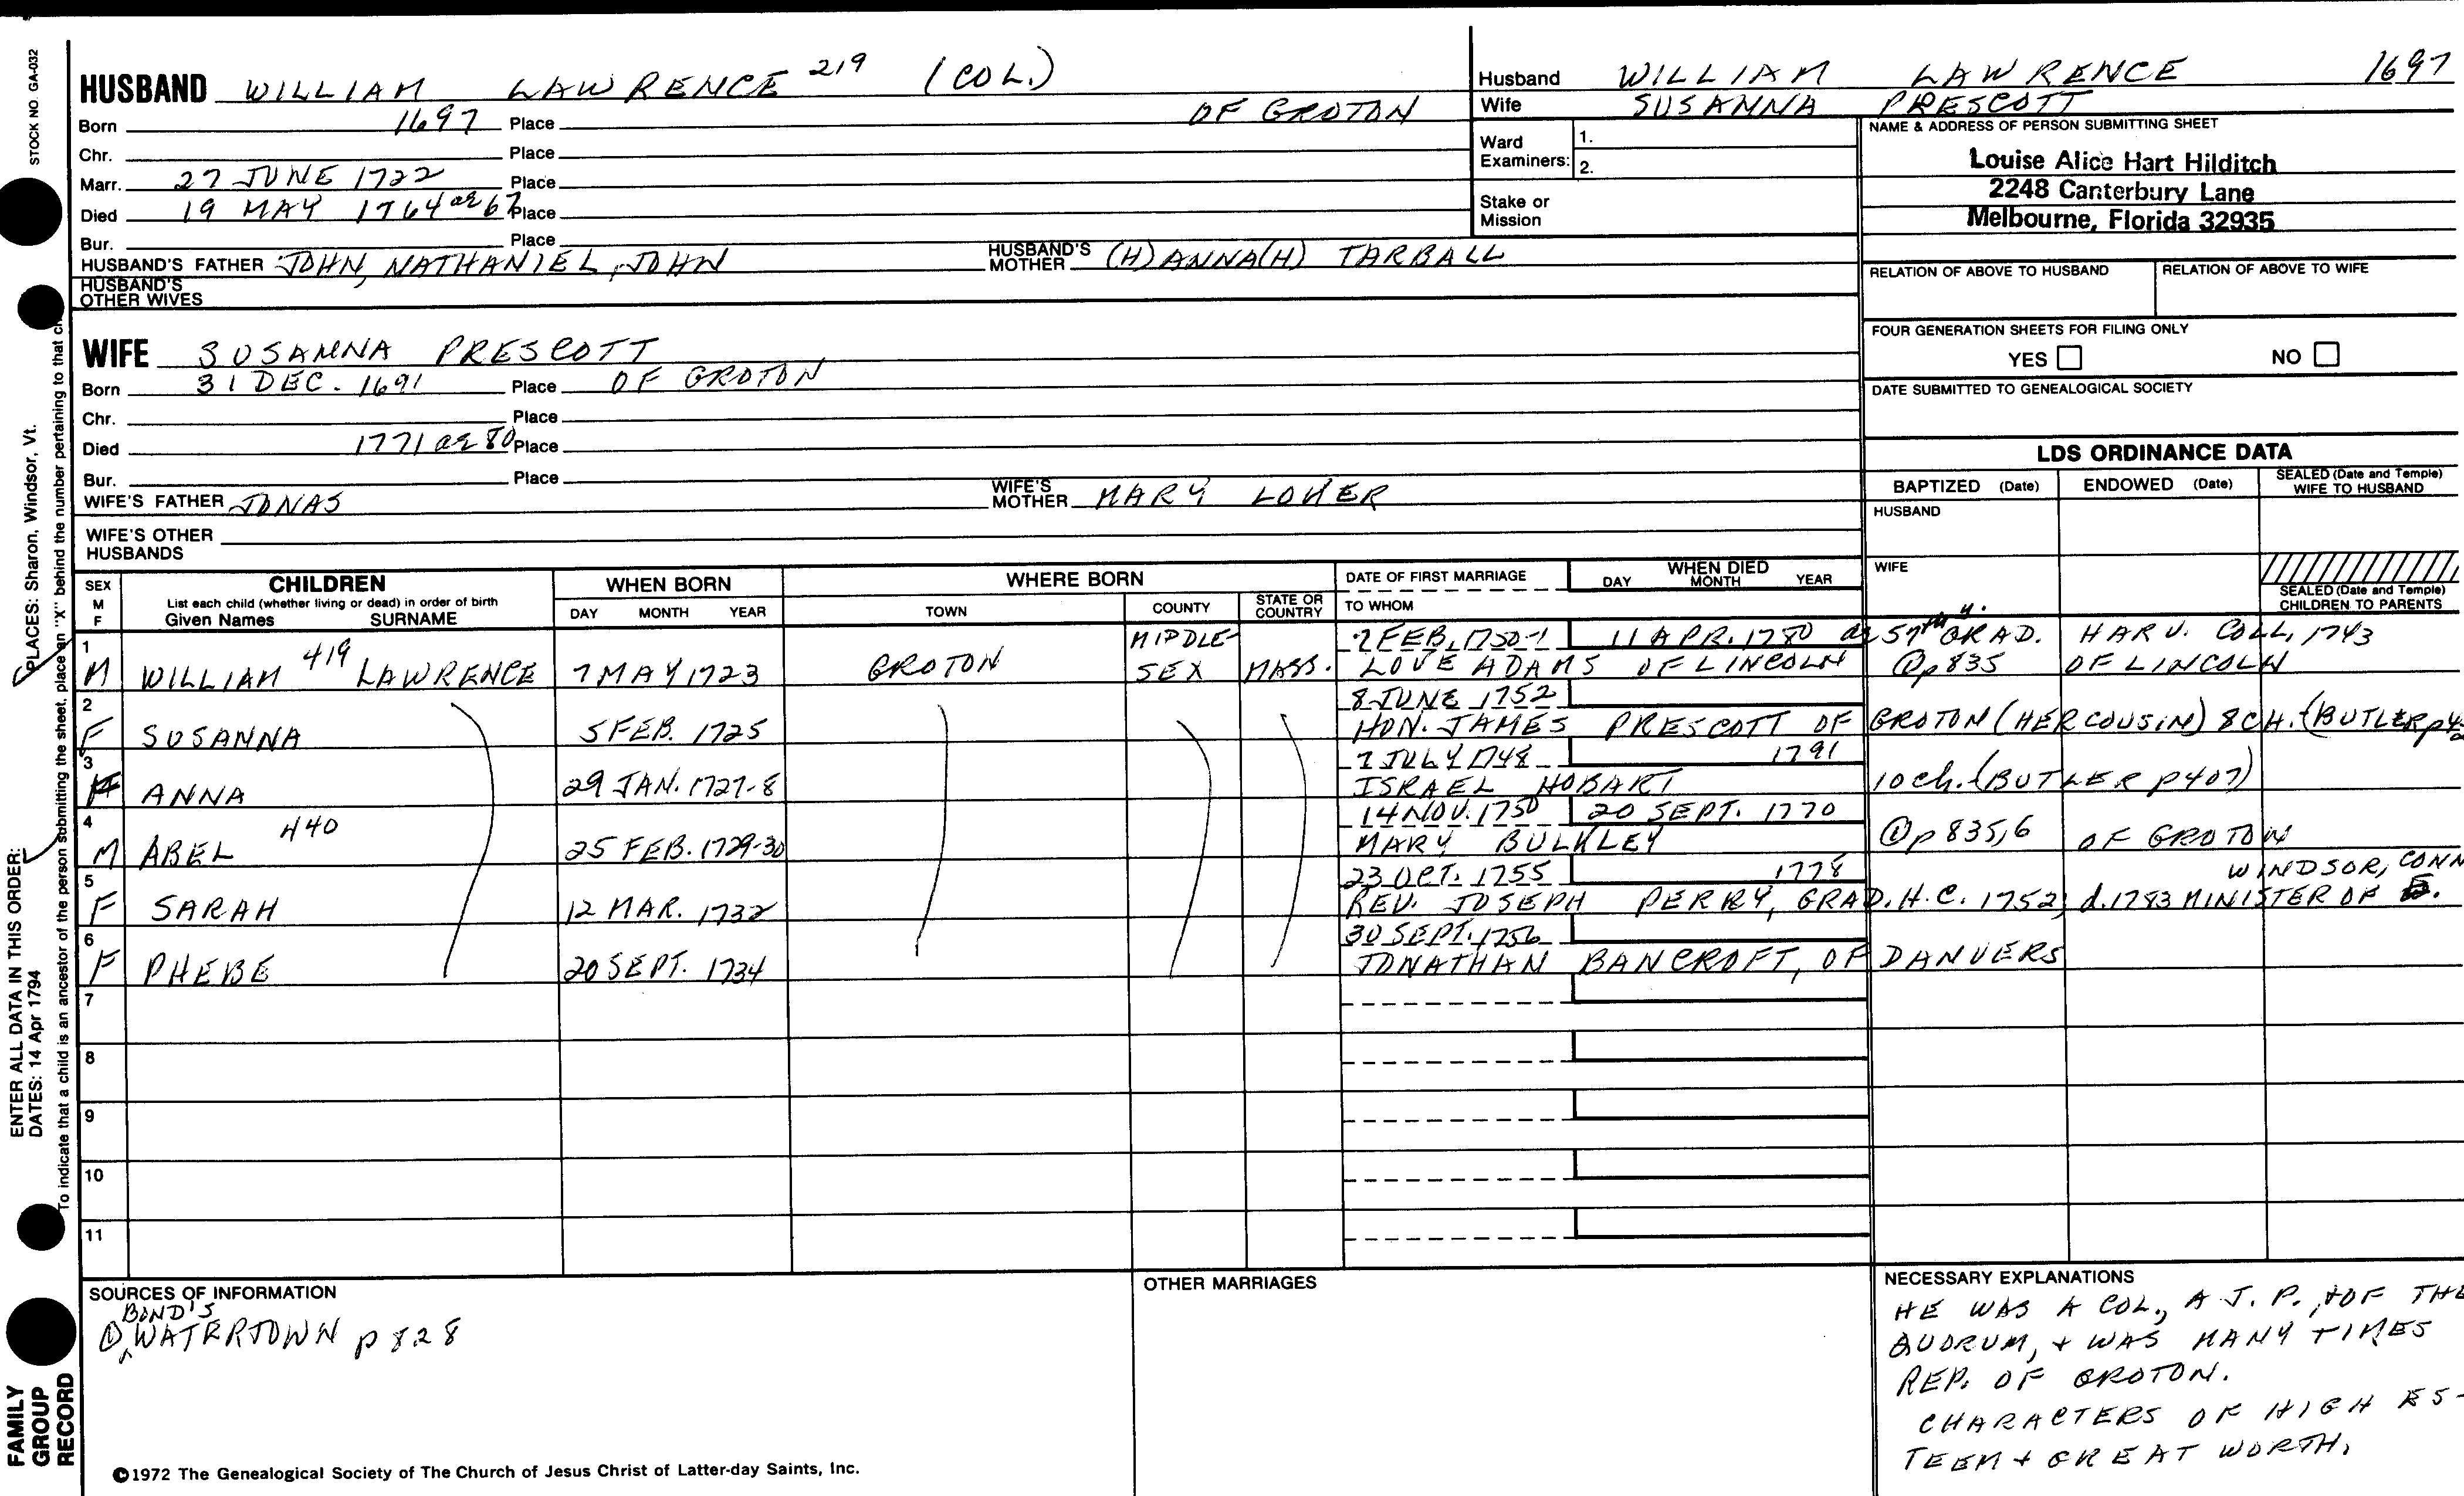 HUSBAND WILLIAM LAWRENCE 219 (COL.)
Born 1697 Place OF GROTON
Chr. Place
Marr. 27 JUNE 1722 Place
Died 19 MAY 1764 ae 67 Place
Bur. Place
HUSBAND'S FATHER JOHN, NATHANIEL, JOHN HUSBAND'S MOTHER (H)ANNA(H) TARBALL
HUSBAND'S OTHER WIVES
WIFE SUSANNA PRESCOTT
Born 31 DEC. 1691 Place OF GROTON
Chr. Place
Died 1771 ae 80 Place
Bur. Place
WIFE'S FATHER JONAS WIFE'S MOTHER MARY LOKER
WIFE'S OTHER HUSBANDS
Husband WILLIAM LAWRENCE 1697
Wife SUSANNA PRESCOTT
Ward Examiners: 1.
2.
Stake or Mission
NAME & ADDRESS OF PERSON SUBMITTING SHEET
Louise Alice Hart Hilditch
2248 Canterbury Lane
Melbourne, Florida 32935
RELATION OF ABOVE TO HUSBAND RELATION OF ABOVE TO WIFE
FOUR GENERATION SHEETS FOR FILING ONLY
YES NO
DATE SUBMITTED TO GENEALOGICAL SOCIETY
LDS ORDINANCE DATA
BAPTIZED (Date) ENDOWED (Date) SEALED (Date and Temple) WIFE TO HUSBAND
HUSBAND
WIFE
SEALED (Date and Temple) CHILDREN TO PARENTS
SEX M F CHILDREN WHEN BORN WHERE BORN DATE OF FIRST MARRIAGE WHEN DIED
List each child (whether living or dead) in order of birth
Given Names SURNAME DAY MONTH YEAR TOWN COUNTY STATE OR COUNTRY TO WHOM DAY MONTH YEAR
1 MIDDLE- 7 FEB. 1750-1 11 APR. 1780 ae 57th y. GRAD. HARV. COLL, 1743
M WILLIAM 419 LAWRENCE 7 MAY 1723 GROTON SEX MASS. LOVE ADAMS OF LINCOLN ① p 835 OF LINCOLN
2 8 JUNE 1752
F SUSANNA 5 FEB. 1725 HON. JAMES PRESCOTT OF GROTON (HER COUSIN) 8 CH. (BUTLER p
3 7 JULY 1748 1791
F ANNA 29 JAN. 1727-8 ISRAEL HOBART 10 ch. (BUTLER p407)
4 14 NOV. 1750 20 SEPT. 1770
M ABEL 440 25 FEB. 1729-30 MARY BULKLEY ① p 835,6 OF GROTON
5 23 OCT. 1755 1778 WINDSOR, CONN
F SARAH 12 MAR. 1732 REV. JOSEPH PERRY, GRAD. H.C. 1752; d. 1783 MINISTER OF E.
6 30 SEPT. 1756
F PHEBE 20 SEPT. 1734 JONATHAN BANCROFT, OF DANVERS
7
8
9
10
11
SOURCES OF INFORMATION
BOND'S
① WATERTOWN p 828
OTHER MARRIAGES
NECESSARY EXPLANATIONS
HE WAS A COL., A J. P., + OF THE
QUORUM, + WAS MANY TIMES
REP. OF GROTON.
CHARACTERS OF HIGH ES-
TEEM + GREAT WORTH.
©1972 The Genealogical Society of The Church of Jesus Christ of Latter-day Saints, Inc.
STOCK NO. GA-032
PLACES: Sharon, Windsor, Vt.
ENTER ALL DATA IN THIS ORDER:
DATES: 14 Apr 1794
To indicate that a child is an ancestor of the person submitting the sheet, place an "X" behind the number pertaining to that
FAMILY
GROUP
RECORD